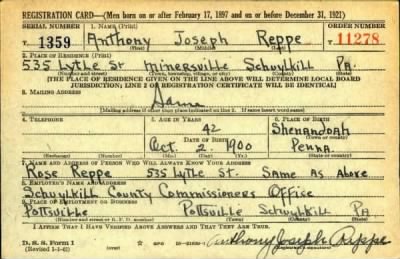 REGISTRATION CARD—(Men born on or after February 17, 1897 and on or before December 31, 1921)
SERIAL NUMBER 1. NAME (Print) ORDER NUMBER
T 1359 Anthony Joseph Reppe T 11278
(First) (Middle) (Last)
2. PLACE OF RESIDENCE (Print)
535 Lytle St Minersville Schuylkill Pa.
(Number and street) (Town, township, village, or city) (County) (State)
[THE PLACE OF RESIDENCE GIVEN ON THE LINE ABOVE WILL DETERMINE LOCAL BOARD
JURISDICTION; LINE 2 OF REGISTRATION CERTIFICATE WILL BE IDENTICAL]
3. MAILING ADDRESS
Same
[Mailing address if other than place indicated on line 2. If same insert word same]
4. TELEPHONE 5. AGE IN YEARS 6. PLACE OF BIRTH
42 Shenandoah
DATE OF BIRTH (Town or county)
Oct. 2 1900 Penna.
(Exchange) (Number) (Mo.) (Day) (Yr.) (State or country)
7. NAME AND ADDRESS OF PERSON WHO WILL ALWAYS KNOW YOUR ADDRESS
Rose Reppe 535 Lytle St. Same as Above
8. EMPLOYER'S NAME AND ADDRESS
Schuylkill County Commissioners Office
9. PLACE OF EMPLOYMENT OR BUSINESS
Pottsville Pottsville Schuylkill Pa
(Number and street or R. F. D. number) (Town) (County) (State)
I AFFIRM THAT I HAVE VERIFIED ABOVE ANSWERS AND THAT THEY ARE TRUE.
D. S. S. Form 1
(Revised 1-1-42) (over) Anthony Joseph Reppe